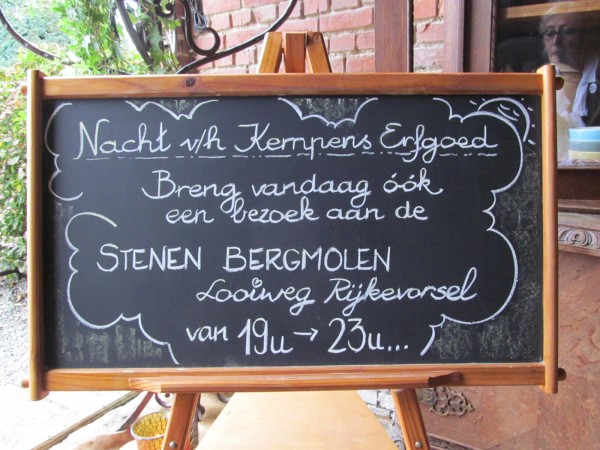 Nacht v/h Kempens Erfgoed
Breng vandaag óók
een bezoek aan de
STENEN BERGMOLEN
Looiweg Rijkevorsel
van 19u → 23u...